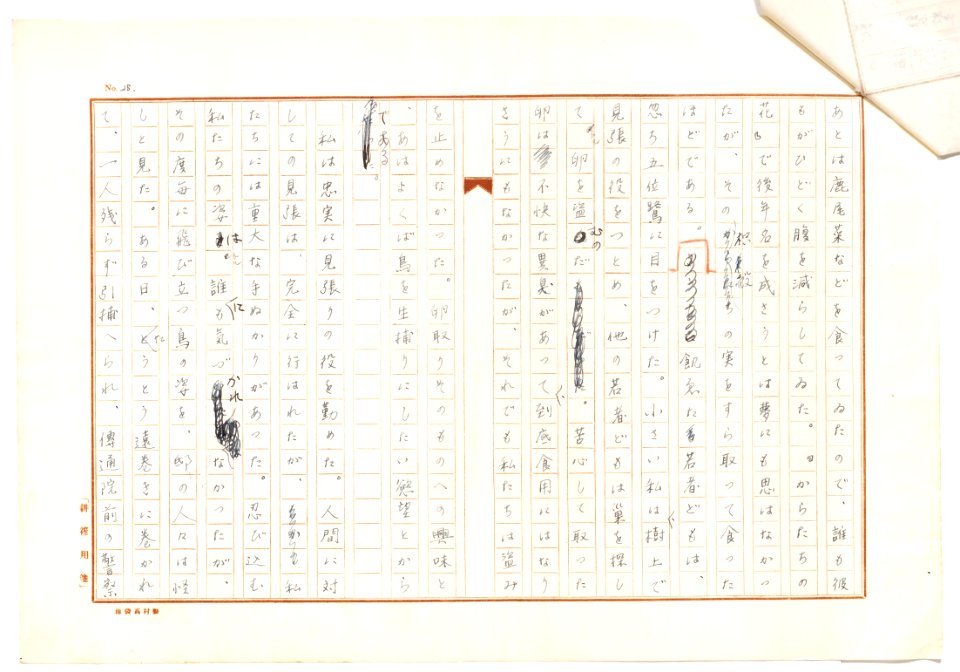 No. 28.
あとは鹿尾菜などを食ってゐたので、誰も彼
もがひどく腹を減らしてゐた。からたちの
花で後年名を成さうとは夢にも思はなかっ
たが、その の実をすら取って食った
ほどである。 飢ゑた若者どもは、
忽ち五位鷺に目をつけた。小さい私は樹上で
見張の役をつとめ、他の若者どもは巣を探し
て卵を盗むのだ。苦心して取った
卵は不快な異臭があって、到底食用にはなり
さうにもなかったが、それでも私たちは盗み
を止めなかった。卵取りそのものへの興味と
、あはよくば鳥を生捕りにしたい慾望とから
である。
私は忠実に見張りの役を勤めた。人間に対
しての見張は、完全に行はれたが、 私
たちには重大な手ぬかりがあった。忍び込む
私たちの姿は、誰にも氣づかれなかったが、
その度毎に飛び立つ鳥の姿を、邸の人々は怪
しと見た。ある日、とうとう遠巻きに巻かれ
て、一人残らず引捕へられ、傳通院前の警察